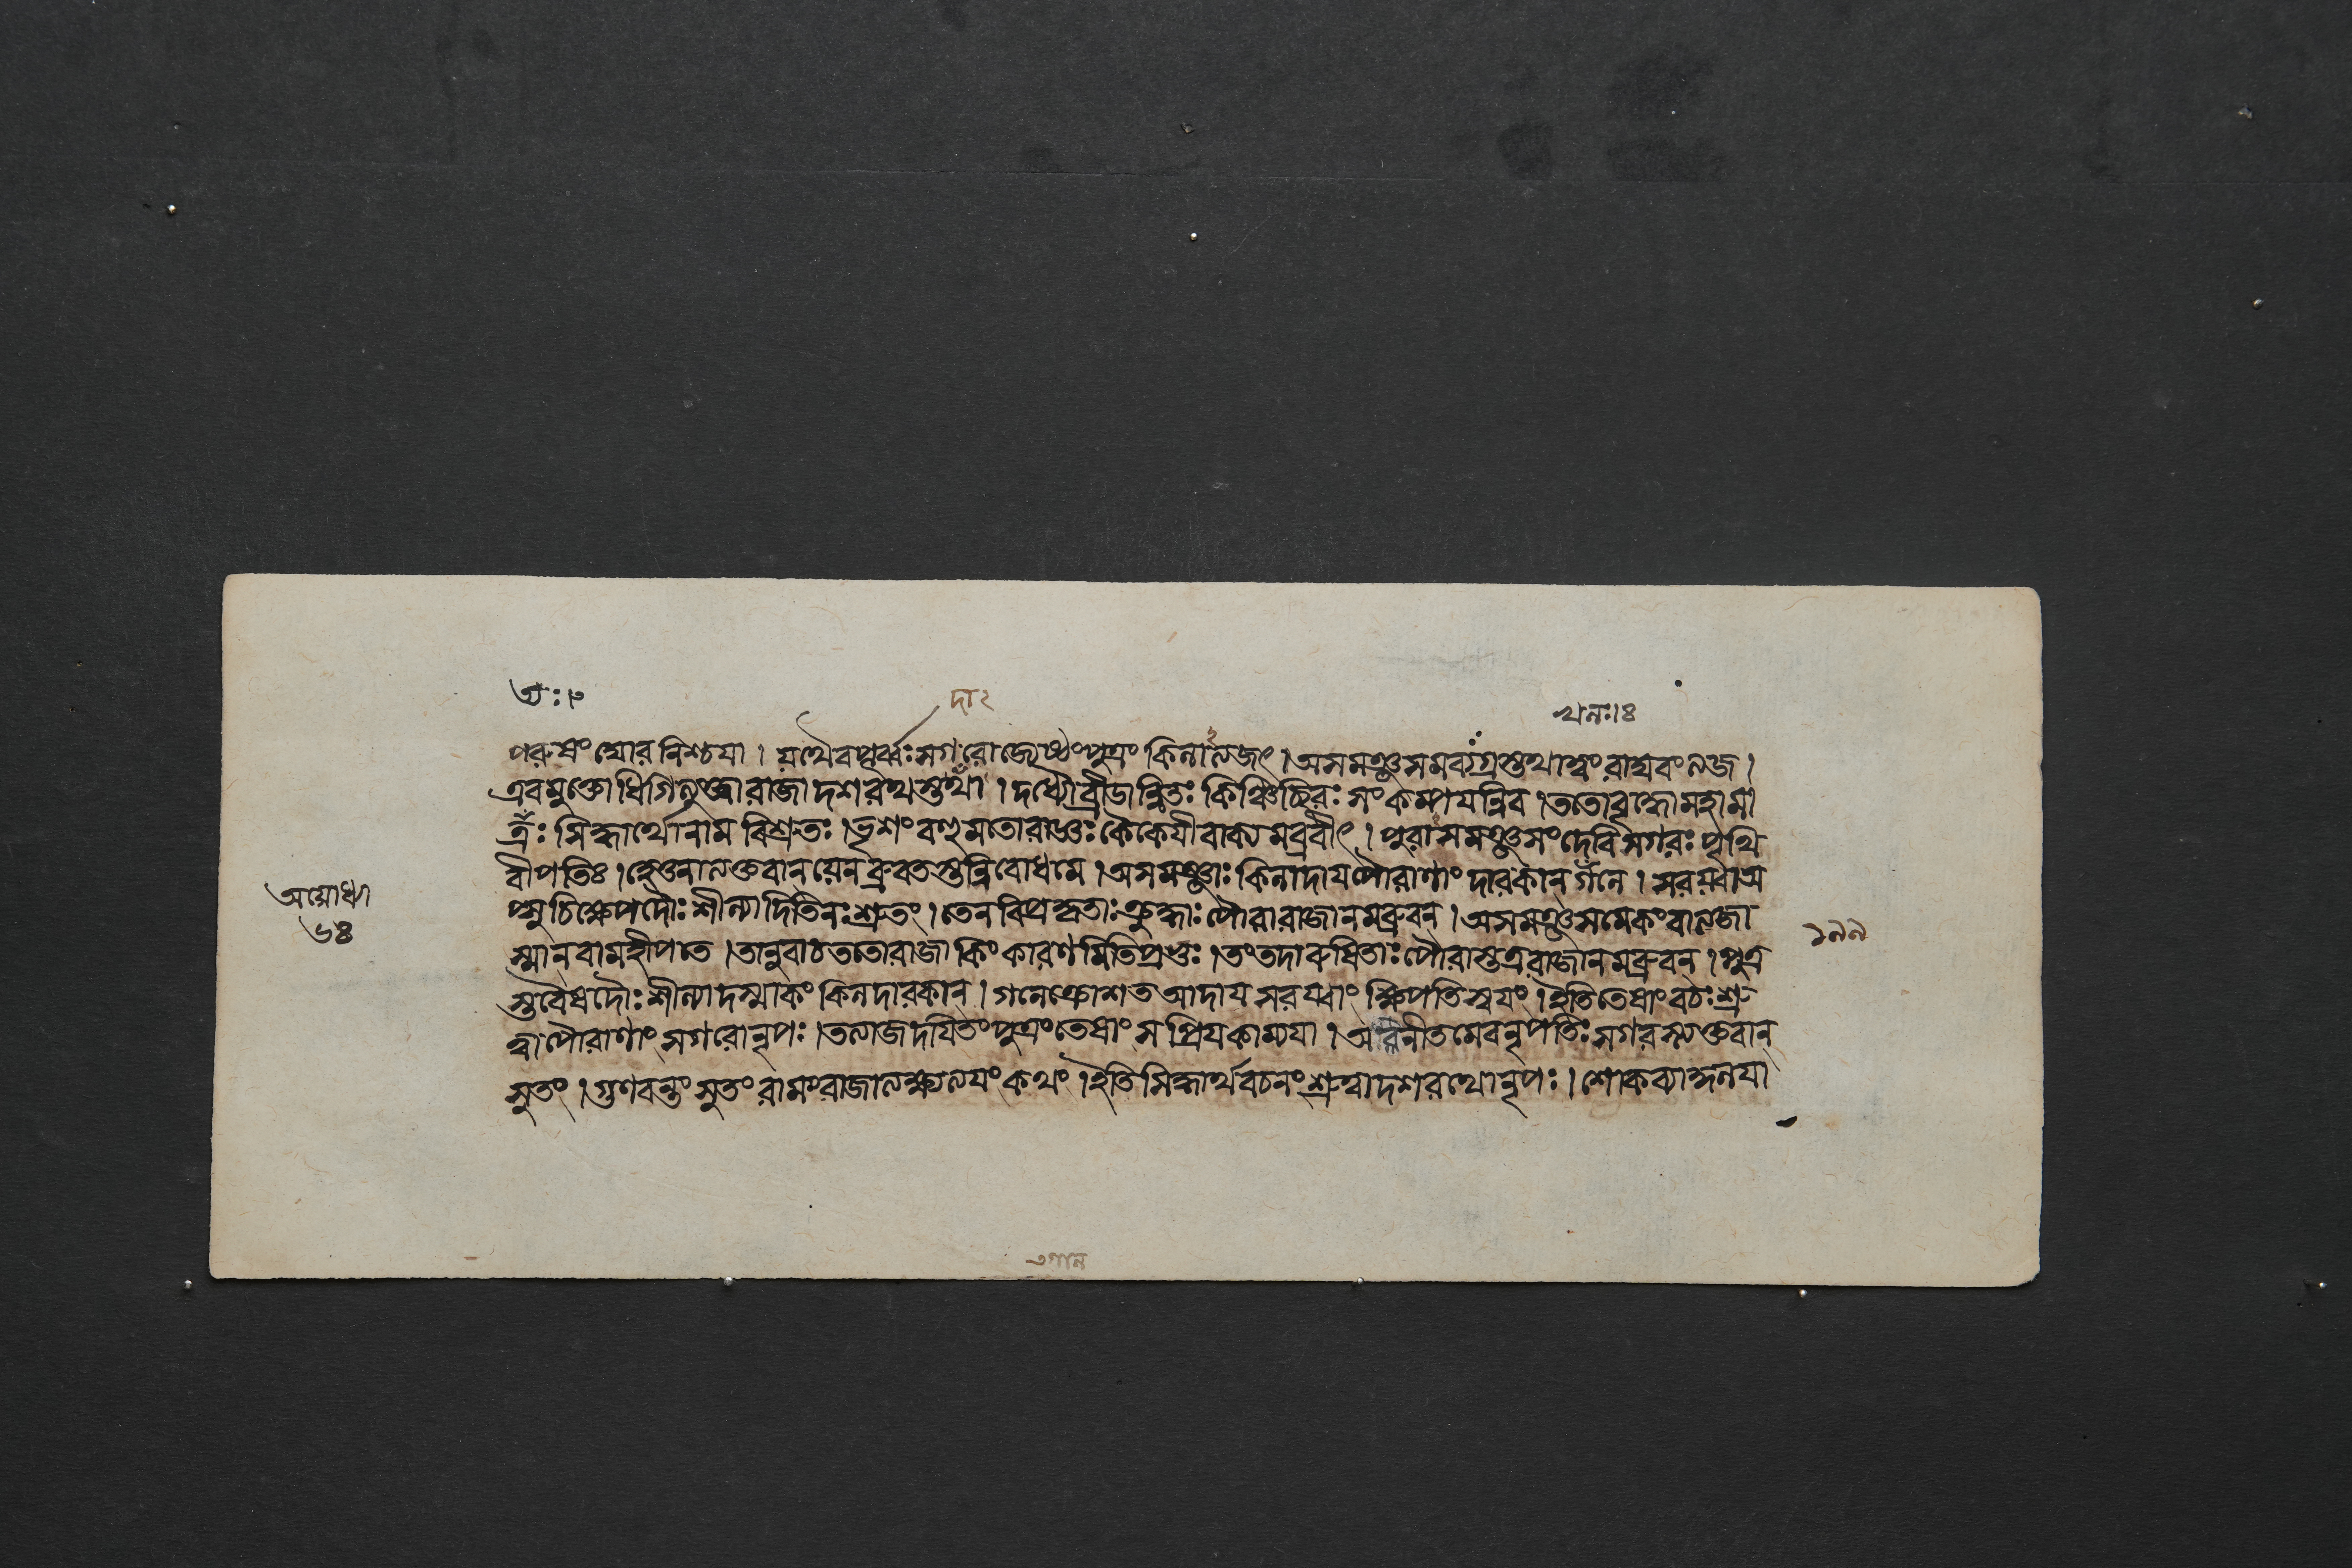 তঃ।৭
দা২
খনঃ।৪
পরুষং ঘোরনিশ্চয়া । যথৈবপূর্ব্বঃসগরোজ্যেষ্ঠংপুত্রং কিলাত্যজৎ । অসমঞ্জসমব্যগ্রস্তথাত্বংরাঘবংত্যজ ।
এবমুক্তোধিগিত্যুক্ত্বারাজাদশরথস্তথা । দধ্যৌব্রীডান্বিতঃ কিঞ্চিচ্ছিরঃ সংকম্পয়ন্নিব । ততোবৃদ্ধোমহামা
ত্রঃ সিদ্ধার্থোনাম বিশ্রুতঃ । ভৃশংবহুমতোরাজ্ঞঃ কৈকেয়ীবাক্যমব্রবীৎ । পুরাসমঞ্জসংদেবিসগরঃ পৃথি
বীপতিঃ । হেতুনাত্যক্তবান্যেন ব্রুবতস্তন্নিবোধমে । অসমঞ্জাঃ কিলাদায়পৌরাণাং দারকান্গলে । সরয়্বাঅ
প্সুচিক্ষেপদৌঃশীল্যাদিতিনঃশ্রুতং । তেনবিপ্রকৃতাঃক্রুদ্ধাঃপৌরারাজানমব্রুবন্ । অসমঞ্জসমেকংবাত্যজা
স্মান্বামহীপতে । তানুবাচততোরাজা কিংকারণমিতিপ্রভুঃ । তংতদারুষিতাঃপৌরাস্তত্ররাজানমব্রুবন্ । পুত্র
স্তবৈষদৌঃশীল্যাদস্মাকং কিলদারকান্ । গলেক্রোশতআদায়সরয়্বাং ক্ষিপতিস্বয়ং । ইতিতেষাংবচঃশ্রু
ত্বাপৌরাণাং সগরোনৃপঃ । তত্যাজদয়িতংপুত্রংতেষাংসপ্রিয়কাম্যয়া । অবিনীতমেবনৃপতিঃসগরস্ত্যক্তবান্
সুতং । গুণবন্তংসুতংরামংরাজাত্যক্ষ্যত্যয়ংকথং । ইতিসিদ্ধার্থবচনংশ্রুত্বাদশরথোনৃপঃ । শোকব্যাহ্নলয়া
অযোধ্যা
৬৪
১৯৯